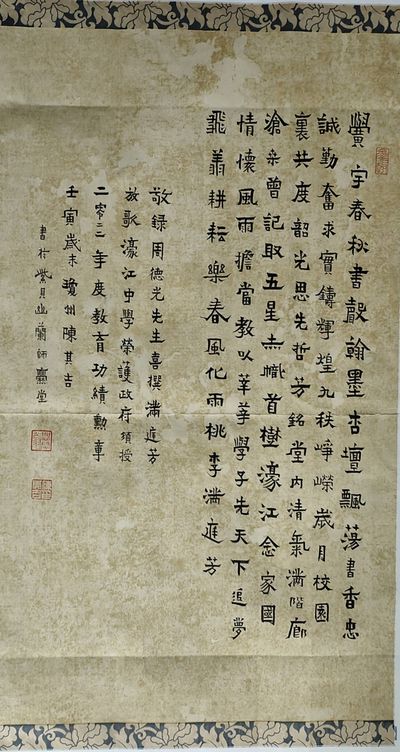 黌宇春秋書聲翰墨杏壇飄蕩書香忠
誠勤奮求實鑄輝煌九秩崢嶸歲月校園
裏共度韶光思先哲芳銘堂内清氣滿階廊
滄桑曾記取五星赤幟首樹濠江念家國
情懷風雨擔當教以莘莘學子先天下追夢
飛翥耕耘樂春風化雨桃李滿庭芳
敬録周德光先生喜撰滿庭芳
放歌濠江中學榮獲政府頒授
二零二二年度教育功績勳章
壬寅歲末瓊州陳其吉
書於紫貝幽蘭師齋堂